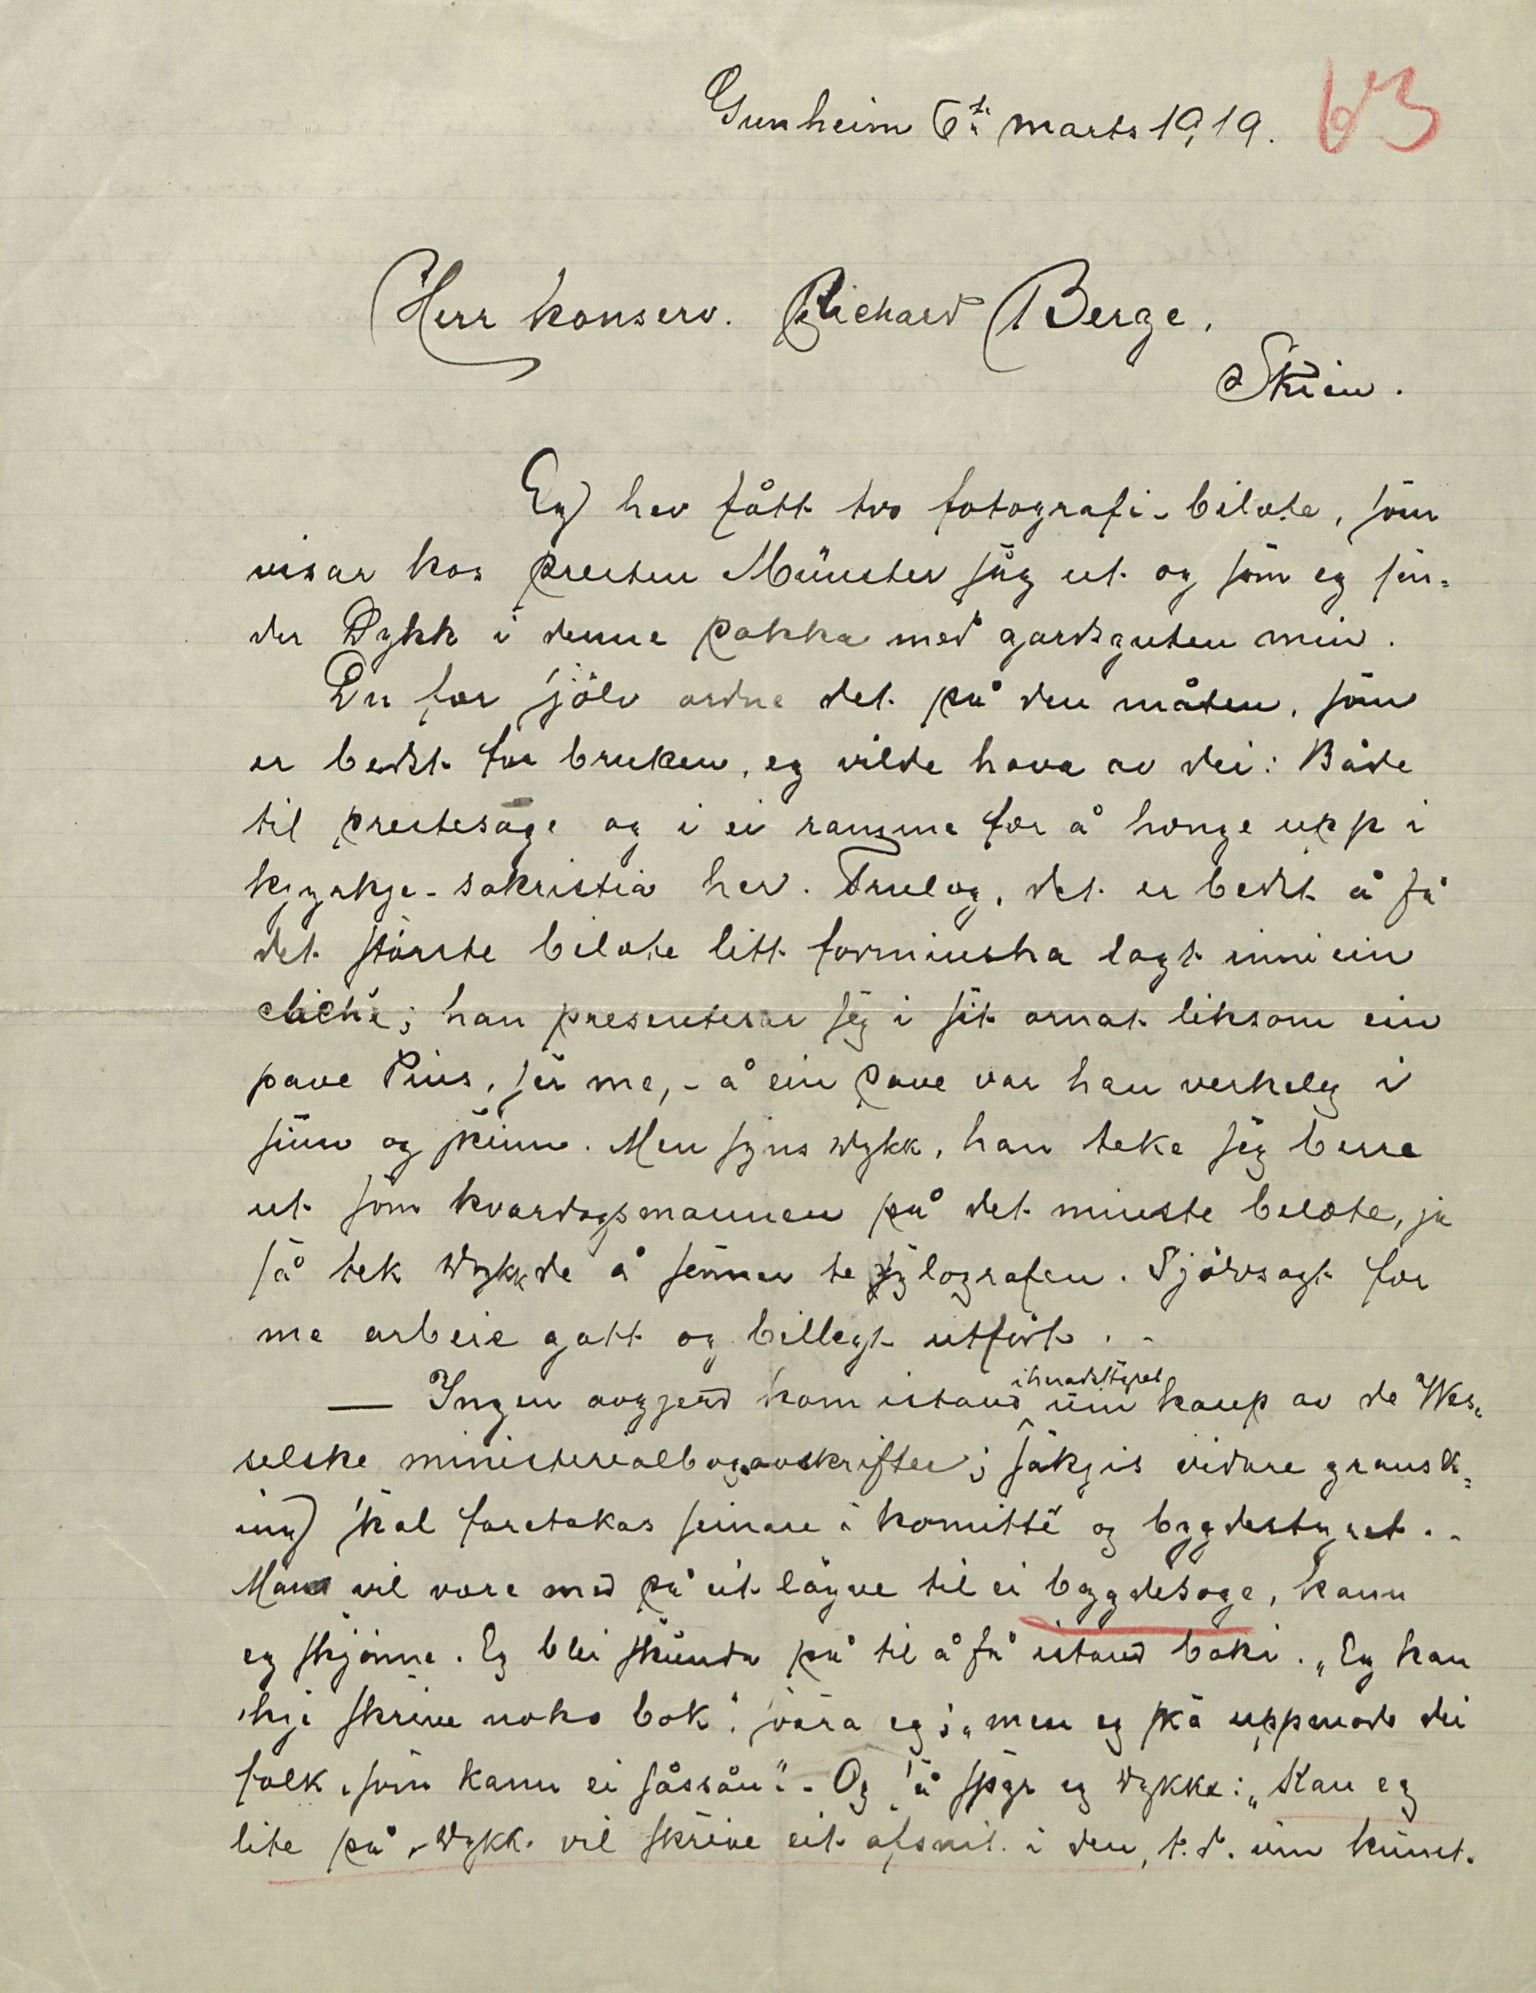 Gunheim 6te marts 1919. 63
Herr konserv. Richard Berge,
Skien.
Eg hev fått tvo fotografi-bilæte, som
visar kos presten Münster såg ut og som eg sen-
der Dykk i denne pakka med gardsguten min.
Du fær sjölv ordne det på den måten, som
er bedst for bruken, eg vilde hava av dei: Både
til prestesoge og i ei ramme for å henge upp i
kjyrkje-sakristia her. Truleg, det er bedst å få
det störste bilæte litt forminska lagt inn i ein
cliché; han presenterar seg i sit ornat liksom ein
pave Pius, ser me, - å ein pave var han verkeleg i
sinn og skinn. Men syns dykk, han teke seg berre
ut som kvardagsmannen på det minste bilæte, ja
så tek dykk de å senner te xylografen. Sjölvsagt fær
me arbeie gott og billegt utfört. -
— Ingen avgjerd kom istand i heradstyret um kaup av de Wes-
selske ministerialbogavskrifter; saki vidare gransk-
ing skal foretakas seinare i komitté og bygdestyret. -
Man vil vore med på eit löyve til ei bygdesoge, kann
eg skjönne. Eg blei skunda på til å få istand boki. "Eg kan
ikje skrive noko bok", svara eg; "men eg ska uppmode dei
folk, som kann ei såssån". - Og så spyr eg dykke: "Kan eg
lite på, dykk vil skrive eit afsnit i den, t.d. um kunst.